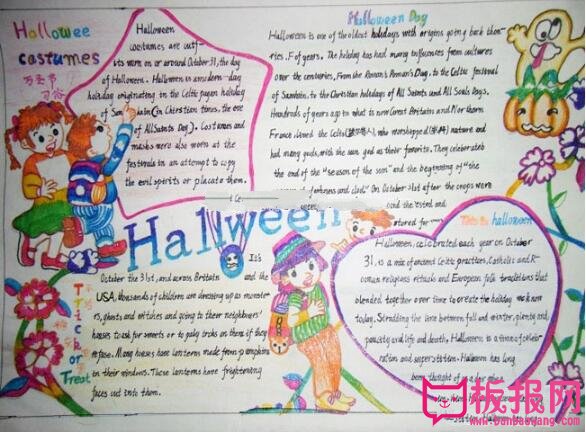 Hallowee
costumes
万圣节
习俗
Halloween
costumes are outf-
its worn on or around October 31, the day
of Halloween. Halloween is a modern-day
holiday originating in the Celtic pagan holiday
of Samhain (in Christian times, the eve
of All Saints Day). Costumes and
masks were also worn at the
festivals in an attempt to copy
the evil spirits or placate them.
Halloween Day
Halloween is one of the oldest holidays with origins going back thon-
ries. F of years. The holiday has had many influences from cultures
over the centuries. From the Roman's Pomona's Day, to the Celtic festival
of Samhain, to the Christian holidays of All Saints and All Souls Days.
Hundreds of years ago in what is now Great Britain and Northern
France lived the Celts who worshipped nature and
had many gods, with the sun god as their favorite. They celebrated
the end of the "season of the sun" and the beginning of "the
of darkness and clod" On October 31st after the crops were
stored for
Hallween
It's
October the 31st, and across Britain and the
USA, thousands of children are dressing up as monster
s, ghosts and witches and going to their neighbours'
houses to ask for sweets or to paly tricks on them if they
refuse. Many houses have lanterns made from pumpkins
in their windows. These lanterns have frightening
faces cut into them.
Trick or
Treat
This is halloween
Halloween, celebrated each year on October
31, is a mix of ancient Celtic practices, Catholic and R-
oman religious rituals and European folk traditions that
blended together over time to create the holiday we know
today. Straddling the line between fall and winter, plenty and
paucity and life and death, Halloween is a time of celeb-
ration and superstition. Halloween has long
been thought of as a day when
板报网
www.banbaowang.com